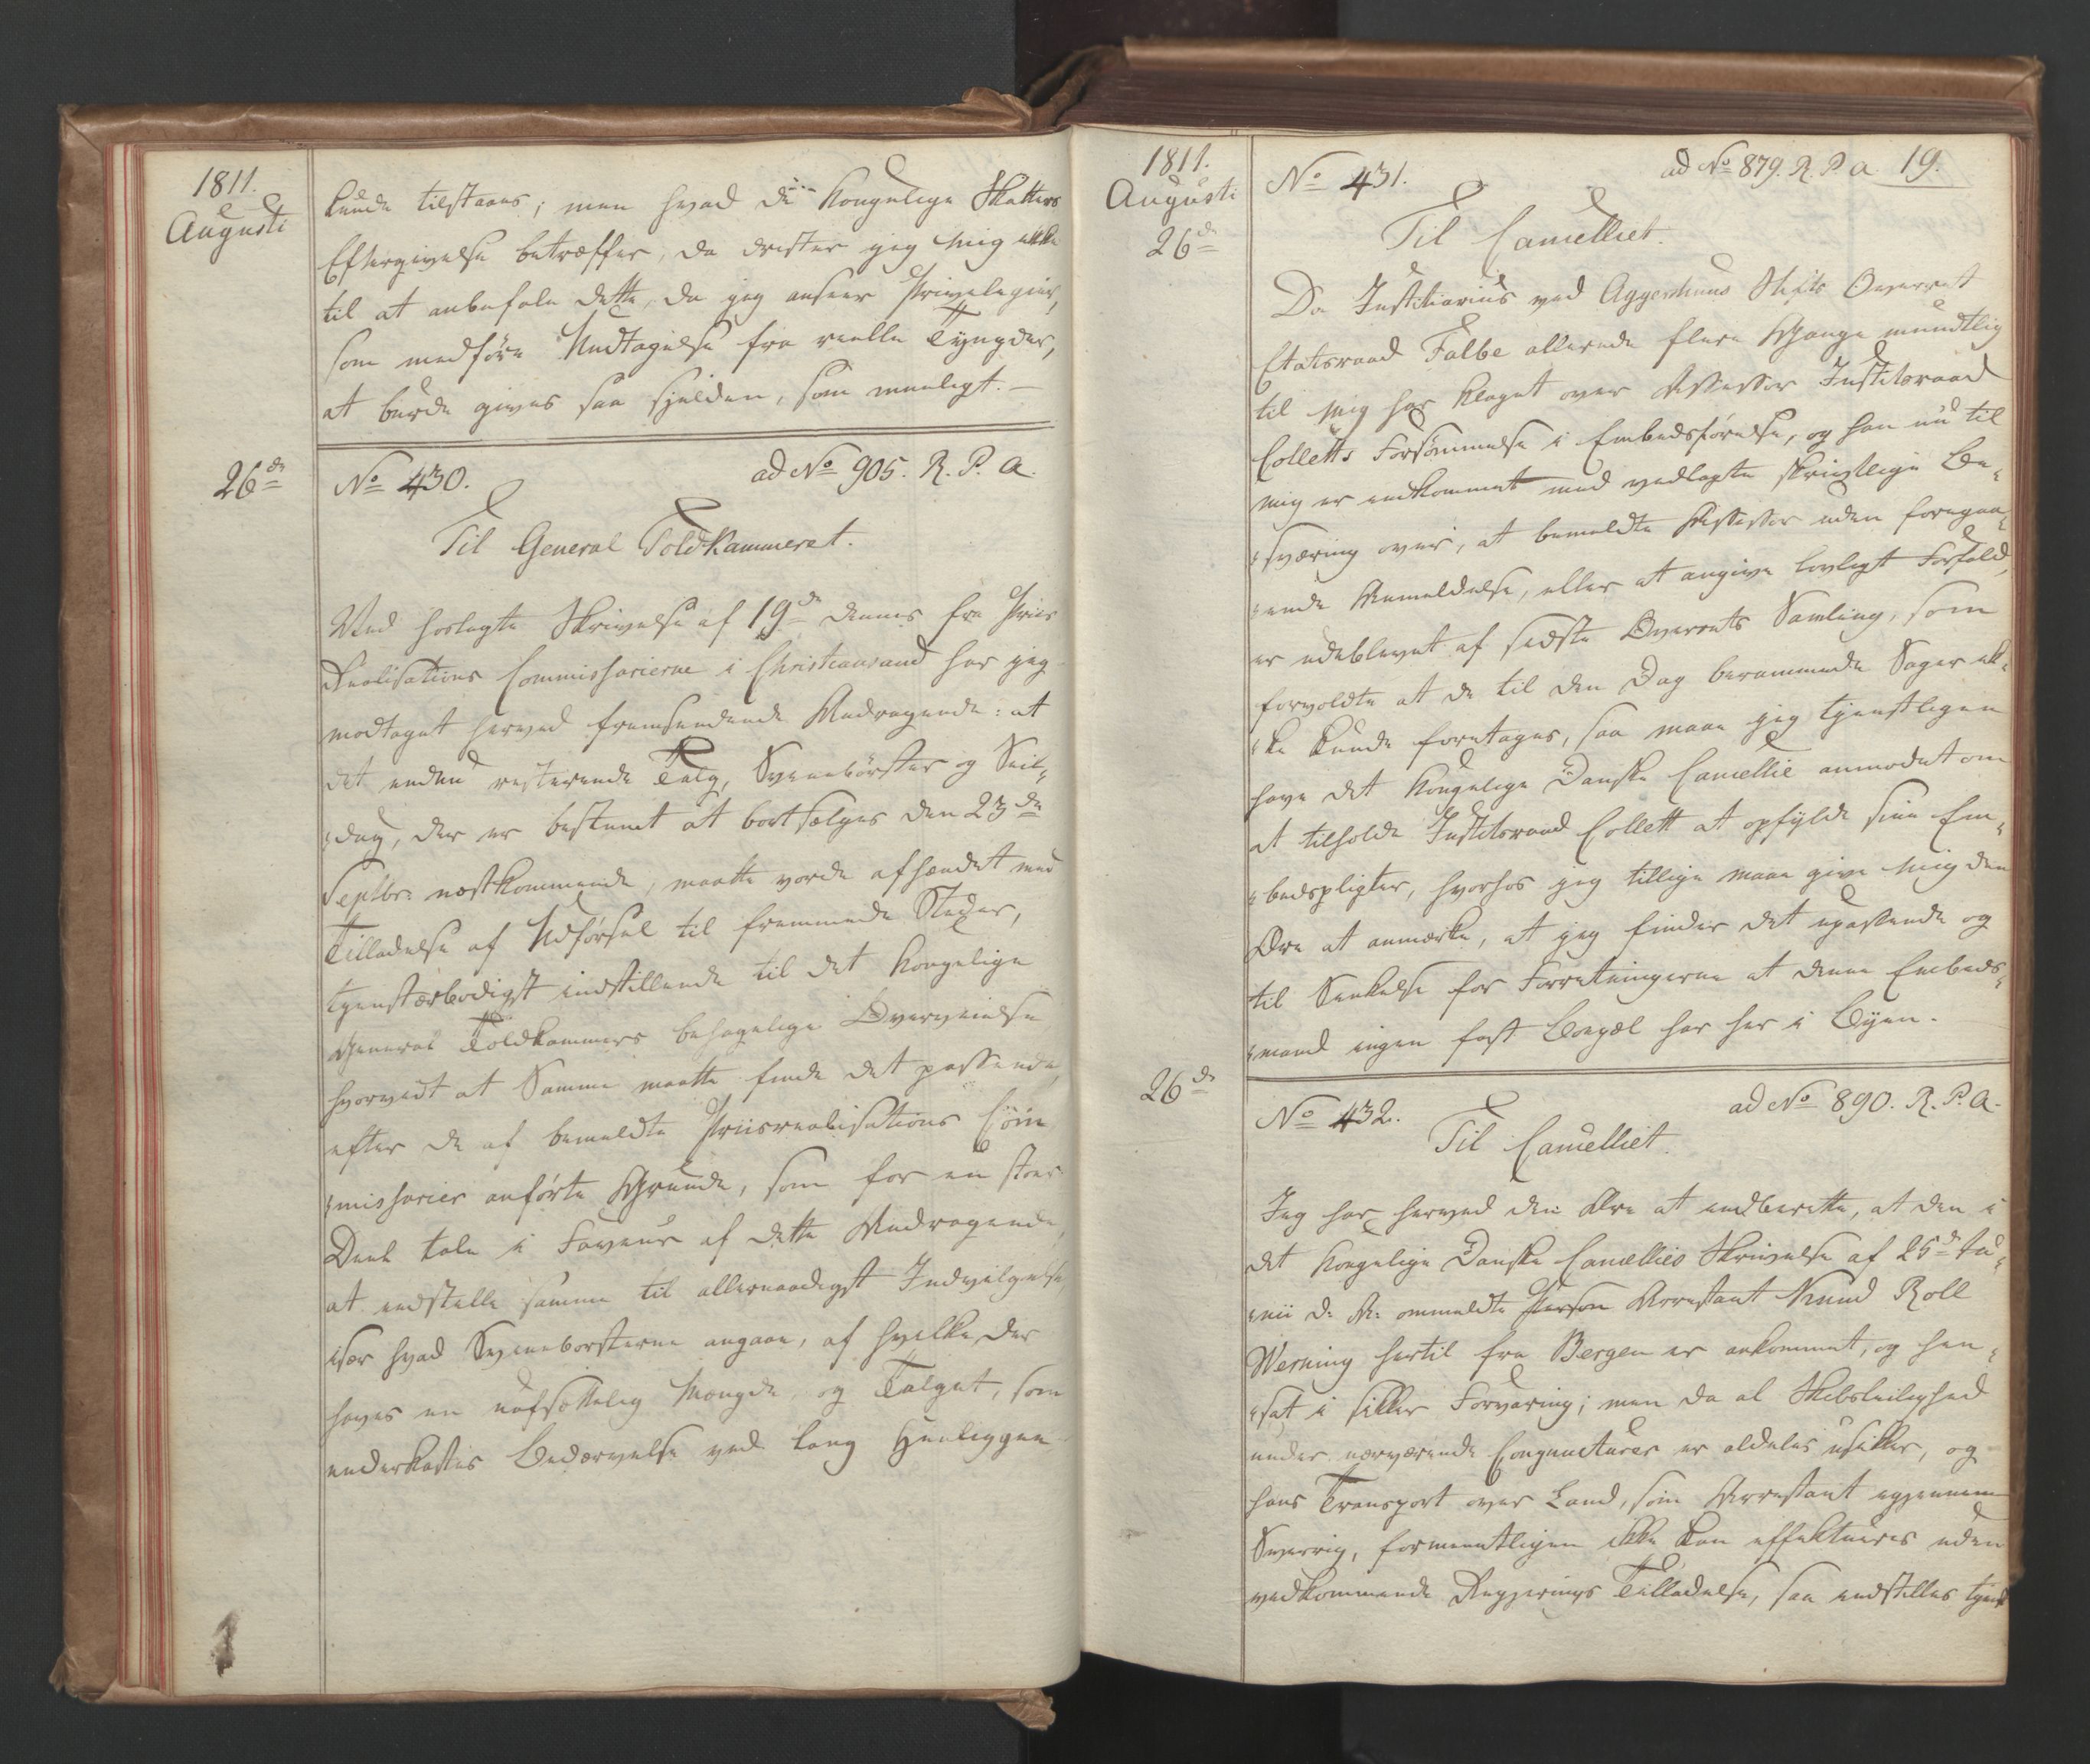 1811.
Augusti
kunde tilstaaes; men hvad de Kongelige Skatters
Eftergivelse betræffer, da drister jeg mig ikke
til at anbefale dette, da jeg anseer Privelegier,
som medføre Undtagelse fra reelle Tyngder,
at burde gives saa sjelden, som mueligt. —
26de
No 430.
ad No 905. R. P. a.
Til General Toldkammeret.
Ved hoslagte Skrivelse af 19de dennes fra Priis
Realisations Commissarierne i Christiansand har jeg
modtaget herved fremsendende Andragende: at
det endnu resterende Talg, Svinebörster og Seil-
dug, der er bestemt at bortsælges den 23de
Septbr: næstkommende, maatte vorde afhændet med
Tilladelse af Udförsel til fremmede Steder,
tjenstærbødigst indstillende til det Kongelige
General Toldkammers behagelige Overveielse
hvorvidt at Samme maatte finde det passende,
efter de af bemeldte Priisrealisations Com-
missarier anførte Grunde, som for en stor
Deel tale i Faveur af dette Andragende,
at indstille samme til allernaadigst Indvilgelse
især hvad Svinebørsterne angaae, af hvilke der
haves en uafsættelig Mængde, og Talget, som
underkastes Bedærvelse ved lang Henliggen
1811.
Augusti
26de
No 431.
ad No 879. R. P. a.
19.
Til Cancelliet.
Da Justitiarius ved Aggershuus Stifts Overret
Etatsraad Falbe allerede flere Gange mundtlig
til mig har klaget over Assessor Justitsraad
Colletts Forsømmelse i Embedsførelse, og han nu til
mig er indkommet med vedlagte skrivtlige Be-
sværing over, at bemeldte Assessor uden foregaa-
ende Anmeldelse, eller at angive lovligt Forfald,
er udeblevet af sidste Overrets Samling, som
forvoldte at de til den Dag berammede Sager ik-
ke kunde foretages, saa maae jeg tjenstligen
have det Kongelige Danske Cancellie anmodet om
at tilholde Justitsraad Collett at opfylde sine Em-
bedspligter, hvorhos jeg tillige maae give mig den
Ære at anmærke, at jeg finder det upassende og
til Sinkelse for Forretningerne at denne Embeds-
mand ingen fast Bopæl har her i Byen.
26de
No 432.
ad No 890. R. P. a.
Til Cancelliet.
Jeg har herved den Ære at indberette, at den i
det Kongelige Danske Cancellies Skrivelse af 25de Ju-
nii d. A. ommeldte Person Arrestant Knud Roll
Werning hertil fra Bergen er ankommet, og hen-
sat i sikker Forvaring; men da al Skibsleilighed
under nærværende Conjuncturer er aldeles usikker, og
hans Transport over Land, som Arrestant igjennem
Sverrig, formeentligen ikke kan effektueres uden
vedkommende Regjerings Tilladelse, saa indstilles tjenst